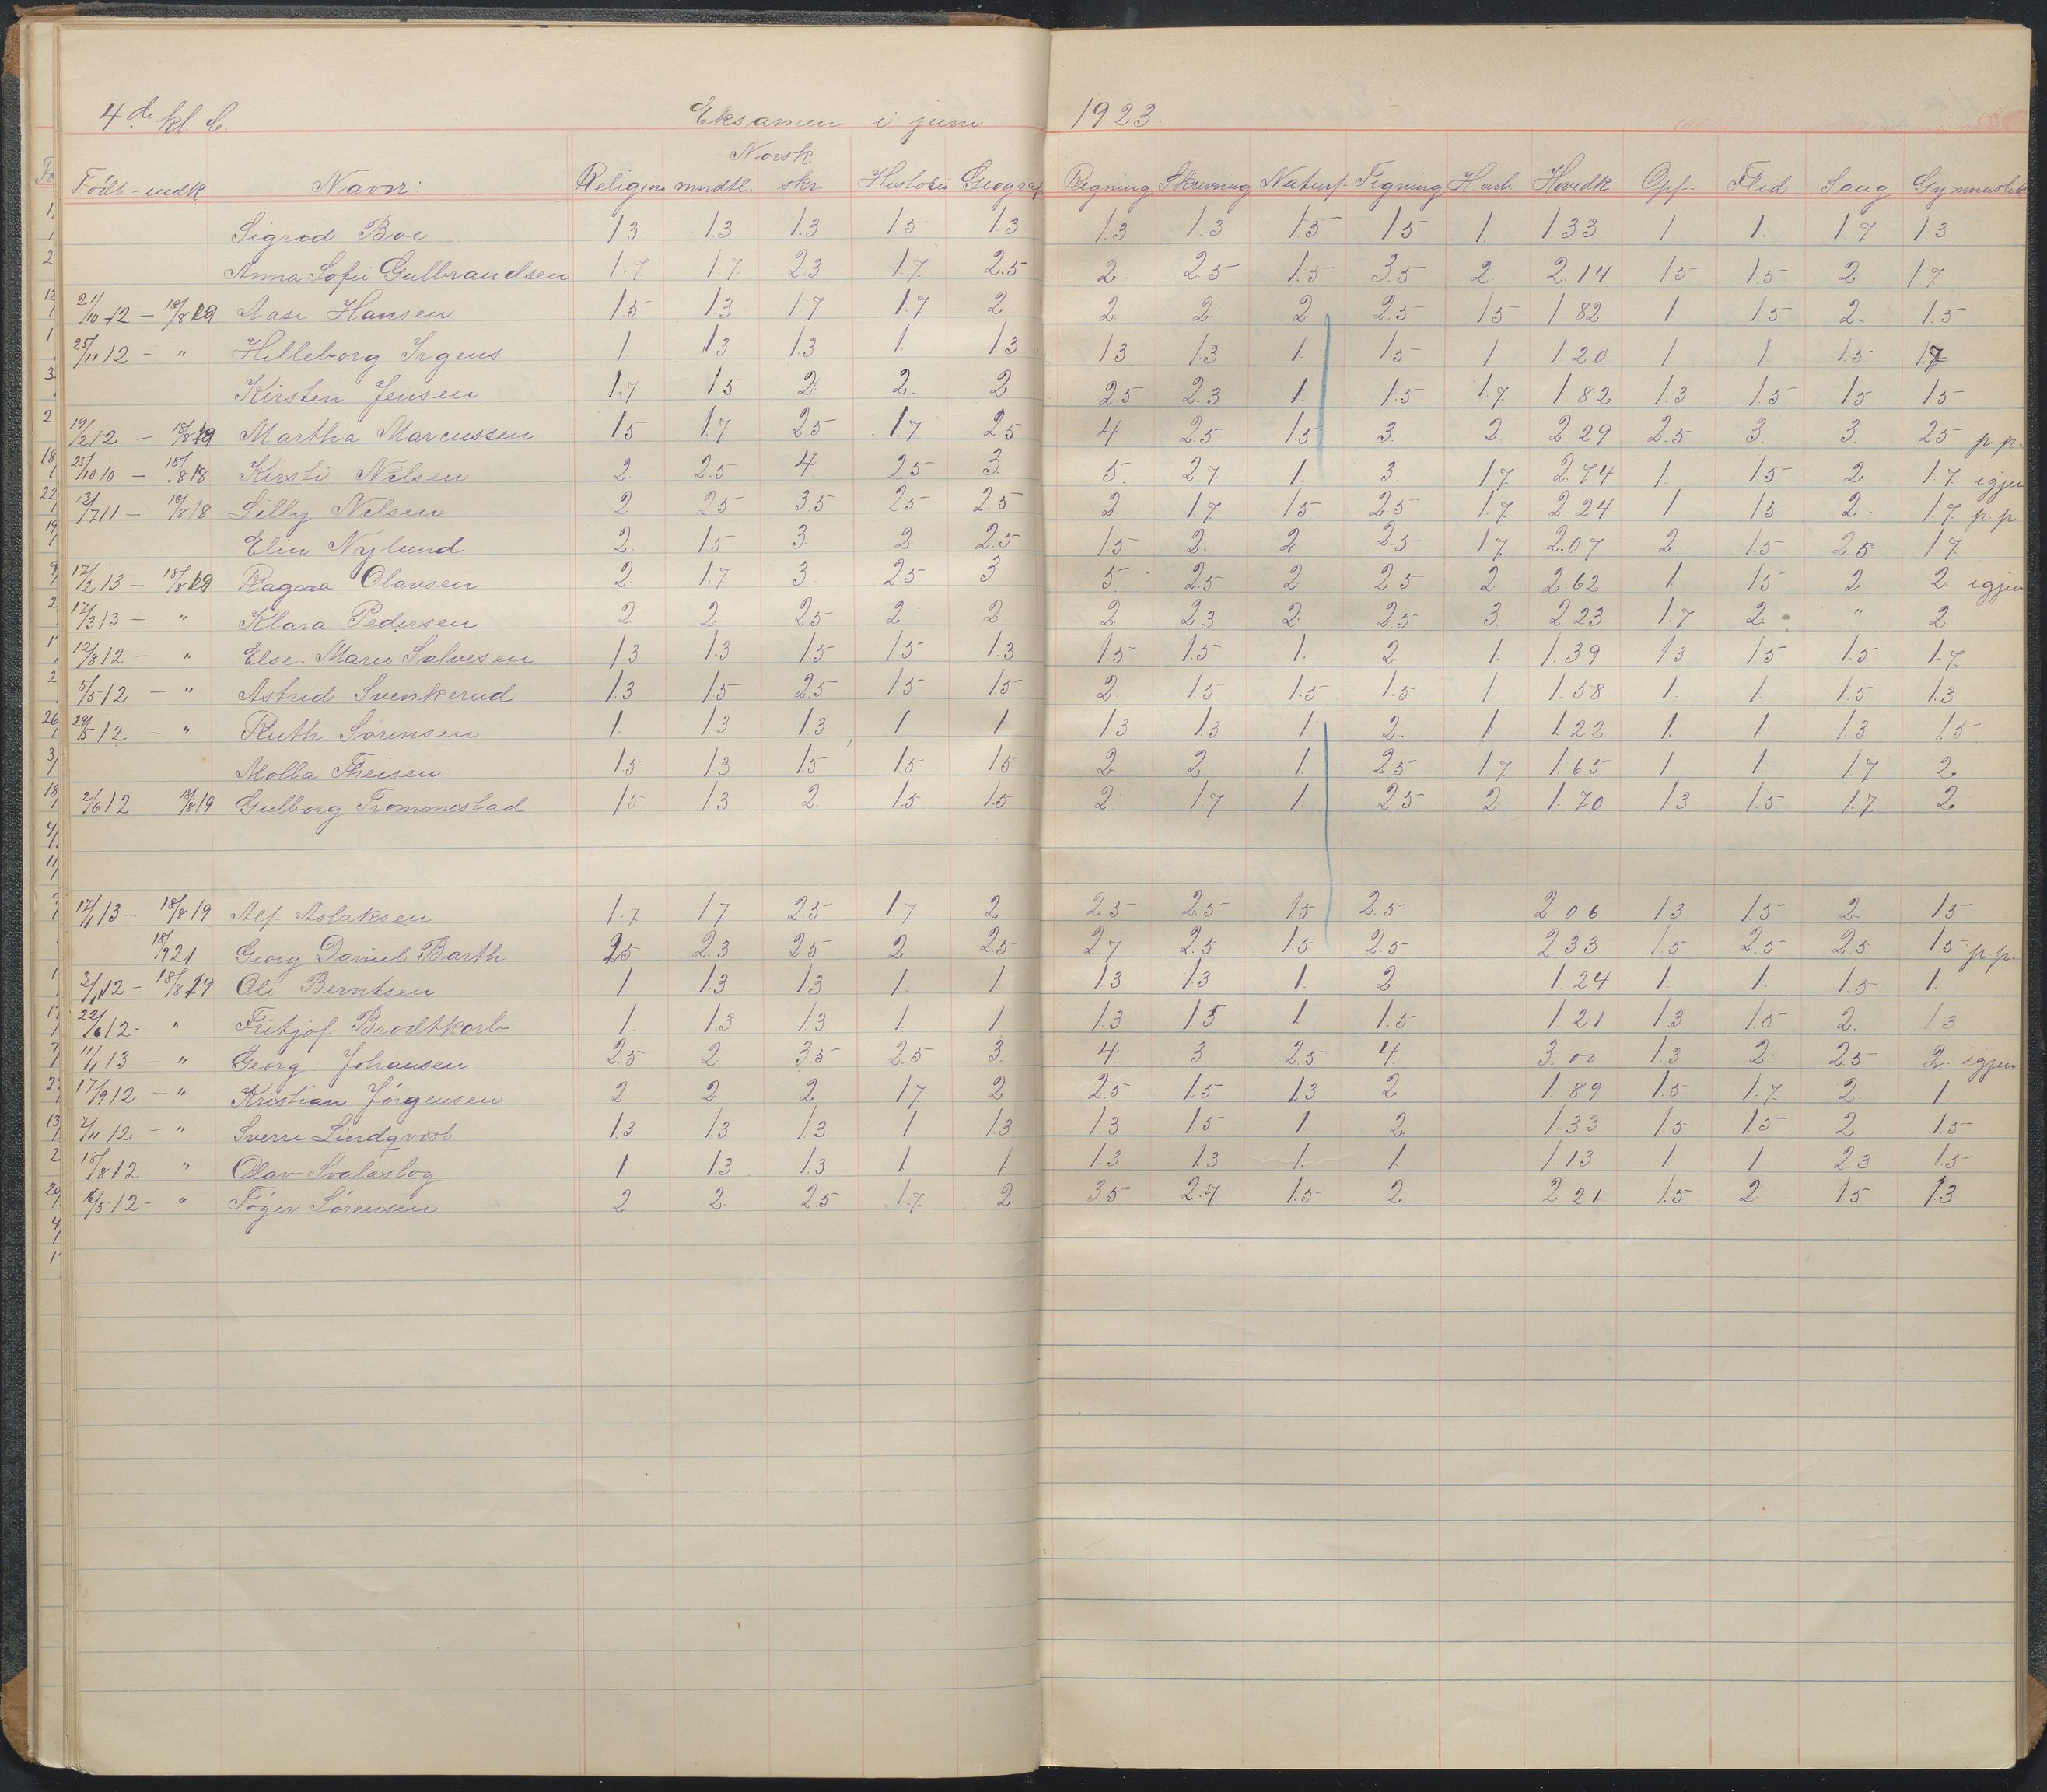 4de kl. C. Eksamen i juni 1923.
Norsk
Født - indk Navn: Religion mndtl. skr. Historie Geograf. Regning Skrivning Naturf. Tegning Harb. Hovedk Opf. Flid Sang Gymnastik
Sigrid Boe 1.3 1.3 1.3 1.5 1.3 1.3 1.3 1.5 1.5 1. 1.33 1. 1. 1.7 1.3
Anna Sofie Gulbrandsen 1.7 1.7 2.3 1.7 2.5 2. 2.5 1.5 3.5 2. 2.14 1.5 1.5 2 1.7
21/10 12 - 18/8 19 Aase Hansen 1.5 1.3 1.7 1.7 2 2 2. 2 2.5 1.5 1.82 1. 1.5 2. 1.5
25/11 12 - " Hilleborg Irgens 1 1.3 1.3 1. 1.3 1.3 1.3 1. 1.5 1 1.20 1. 1 1.5 1.7
Kirsten Jensen 1.7 1.5 2. 2. 2 2.5 2.3 1. 1.5 1.7 1.82 1.3 1.5 1.5 1.5
19/2 12 - 18/8 19 Martha Marcussen 1.5 1.7 2.5 1.7 2.5 4 2.5 1.5 3. 2. 2.29 2.5 3. 3. 2.5 p.p.
25/10 10 - 18/8 18 Kirsti Nilsen 2. 2.5 4 2.5 3. 5. 2.7 1. 3. 1.7 2.74 1. 1.5 2 1.7 igjen
13/7 11 - 18/8 18 Lilly Nilsen 2 2.5 3.5 2.5 2.5 2. 1.7 1.5 2.5 1.7 2.24 1 1.5 2. 1.7 p.p
Elin Nylund 2. 1.5 3. 2. 2.5 1.5 2. 2. 2.5 1.7 2.07 2 1.5 2.5 1.7
17/2 13 - 18/8 19 Ragna Olavsen 2. 1.7 3 2.5 3 5. 2.5 2 2.5 2 2.62 1 1.5 2 2 igjen
17/3 13 - " Klara Pedersen 2 2 2.5 2 2 2 2.3 2 2.5 3. 2.23 1.7 2 " 2
12/8 12 - " Else-Marie Salvesen 1.3 1.3 1.5 1.5 1.3 1.5 1.5 1. 2 1. 1.39 1.3 1.5 1.5 1.7
5/5 12 - " Astrid Svenkerud 1.3 1.5 2.5 1.5 1.5 2 1.5 1.5 1.5 1 1.58 1. 1. 1.5 1.3
29/5 12 - " Ruth Sørensen 1. 1.3 1.3 1 1 1.3 1.3 1 2. 1 1.22 1. 1 1.3 1.5
Molla Theisen 1.5 1.3 1.5 1.5 1.5 2 2. 1. 2.5 1.7 1.65 1 1 1.7 2
2/6 12 18/8 19 Gulborg Trommestad 1.5 1.3 2. 1.5 1.5 2. 1.7 1. 2.5 2. 1.70 1.3 1.5 1.7 2
17/1 13 - 18/8 19 Alf Aslaksen 1.7 1.7 2.5 1.7 2 2.5 2.5 1.5 2.5 2.06 1.3 1.5 2. 1.5
18/9 21 Georg Daniel Barth 2.5 2.3 2.5 2 2.5 2.7 2.5 1.5 2.5 2.33 1.5 2.5 2.5 1.5 p.p.
3/11 12 - 18/8 19 Ole Berntsen 1 1.3 1.3 1. 1 1.3 1.3 1. 2 1.24 1. 1. 1.5 1.
22/6 12 - " Fritjof Brodtkorb 1. 1.3 1.3 1. 1 1.3 1.5 1 1.5 1.21 1.3 1.5 2. 1.3
11/1 13 - " Georg Johansen 2.5 2 3.5 2.5 3. 4 3. 2.5 4 3.00 1.3 2. 2.5 2. igjen
17/9 12 - " Kristian Jørgensen 2 2 2 1.7 2 2.5 1.5 1.3 2 1.89 1.5 1.7 2. 1.
7/11 12 - " Sverre Lindqvist 1.3 1.3 1.3 1 1.3 1.3 1.5 1. 2 1.33 1.5 1.5 2 1.5
18/8 12 - " Olav Svalastog 1. 1.3 1.3 1 1. 1.3 1.3 1. 1. 1.13 1 1. 2.3 1.5
16/5 12 - " Tøger Sørensen 2 2. 2.5 1.7 2 3.5 2.7 1.5 2 2.21 1.5 2 1.5 1.3